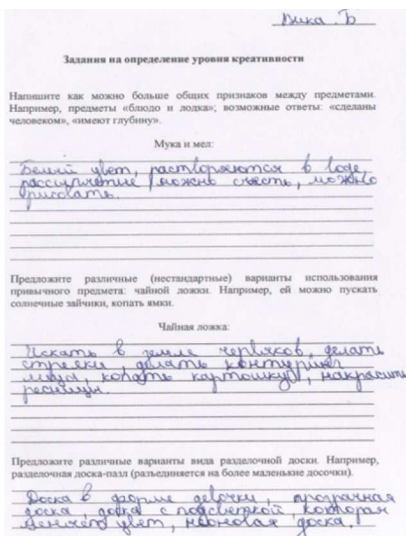 Вика Б
Задания на определение уровня креативности
Напишите как можно больше общих признаков между предметами.
Например, предметы «блюдо и лодка»; возможные ответы: «сделаны
человеком», «имеют глубину».
Мука и мел:
Белый цвет, растворяются в воде
рассыпчатые можно съесть, можно
рисовать.
Предложите различные (нестандартные) варианты использования
привычного предмета: чайной ложки. Например, ей можно пускать
солнечные зайчики, копать ямки.
Чайная ложка:
Искать в земле червяков, делать
стрелки делать контуринг
лица, копать картошку, накрасить
ресницы.
Предложите различные варианты вида разделочной доски. Например,
разделочная доска-пазл (разъединяется на более маленькие досочки).
Доска в форме девочки, прозрачная
доска, доска с подсветкой, которая
меняет цвет, неоновая доска.